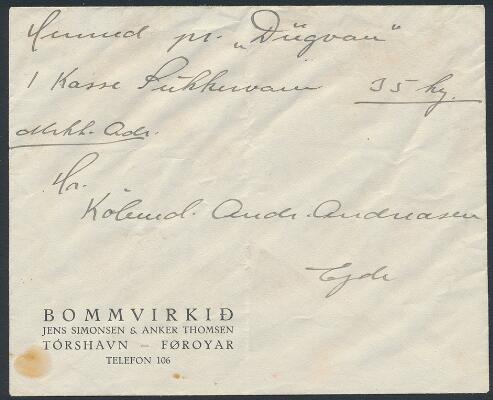 Hermed pr. „Dúgvan"
1 Kasse Sukkervarer 35 kg.
Mrkt. Adr.
Hr.
Købmd. Andr. Andreasen
Ejde
BOMMVIRKIÐ
JENS SIMONSEN & ANKER THOMSEN
TÓRSHAVN – FØROYAR
TELEFON 106